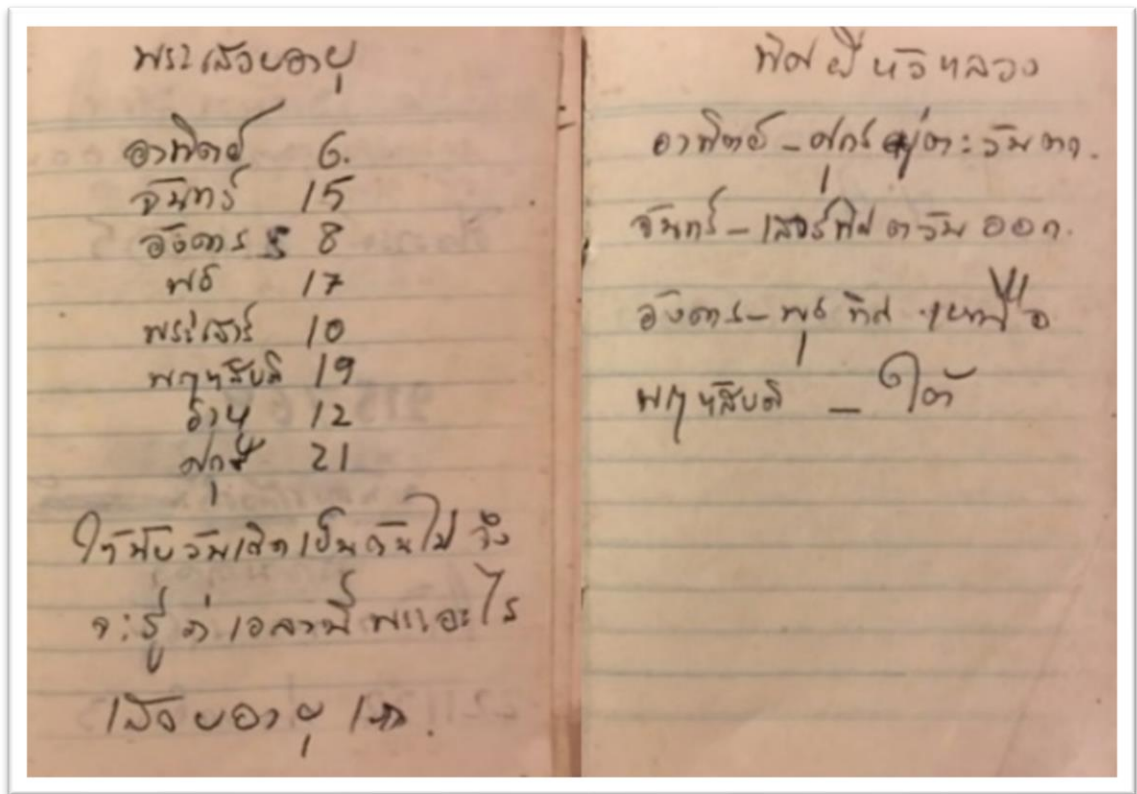 พระเสวยอายุ
อาทิตย์ 6.
จันทร์ 15
อังคาร 8
พุธ 17
พระเสาร์ 10
พฤหัสบดิ 19
ราหู 12
ศุกร์ 21
ให้นับวันเกิดเป็นต้นไป จึง
จะรู้ว่าเวลานี้พระอะไร
เสวยอายุเรา.
ทิศผีหัวหลวง
อาทิตย์ - ศุกร์อยู่ตะวันตก.
จันทร์ - เสาร์ทิศตวันออก.
อังคาร - พุธ ทิศ เหนือ
พฤหัสบดิ - ใต้